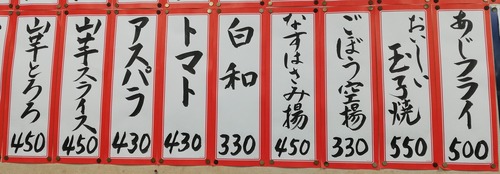 あじフライ
500
おいしい玉子焼
550
ごぼう空揚
330
なすはさみ揚
450
白和
330
トマト
430
アスパラ
430
山芋スライス
450
山芋とろろ
450